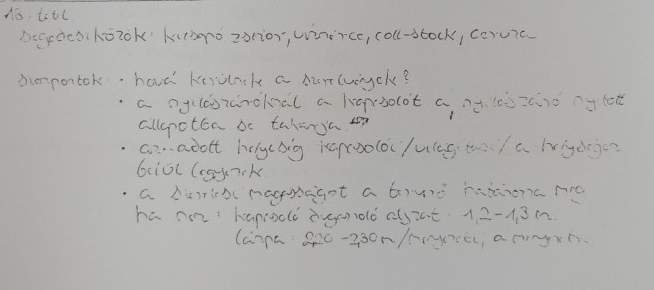 13. tétel
Segédeszközök: kicsapó zsinór, vízmérce, coll-stock, ceruza
Szempontok: • hová kerülnek a szerelvények?
• a nyílászáróknál a kapcsolót a nyílászáró nyitott
állapotba se takarja
• az adott helyiség kapcsolói /világítási/ a helyiségen
belül legyenek
• a szerelési magasságot a tervező határozza meg
ha nem: kapcsoló dugaszoló aljzat: 1,2-1,3 m.
lámpa: 2,20-2,30 m /mennyezet, a